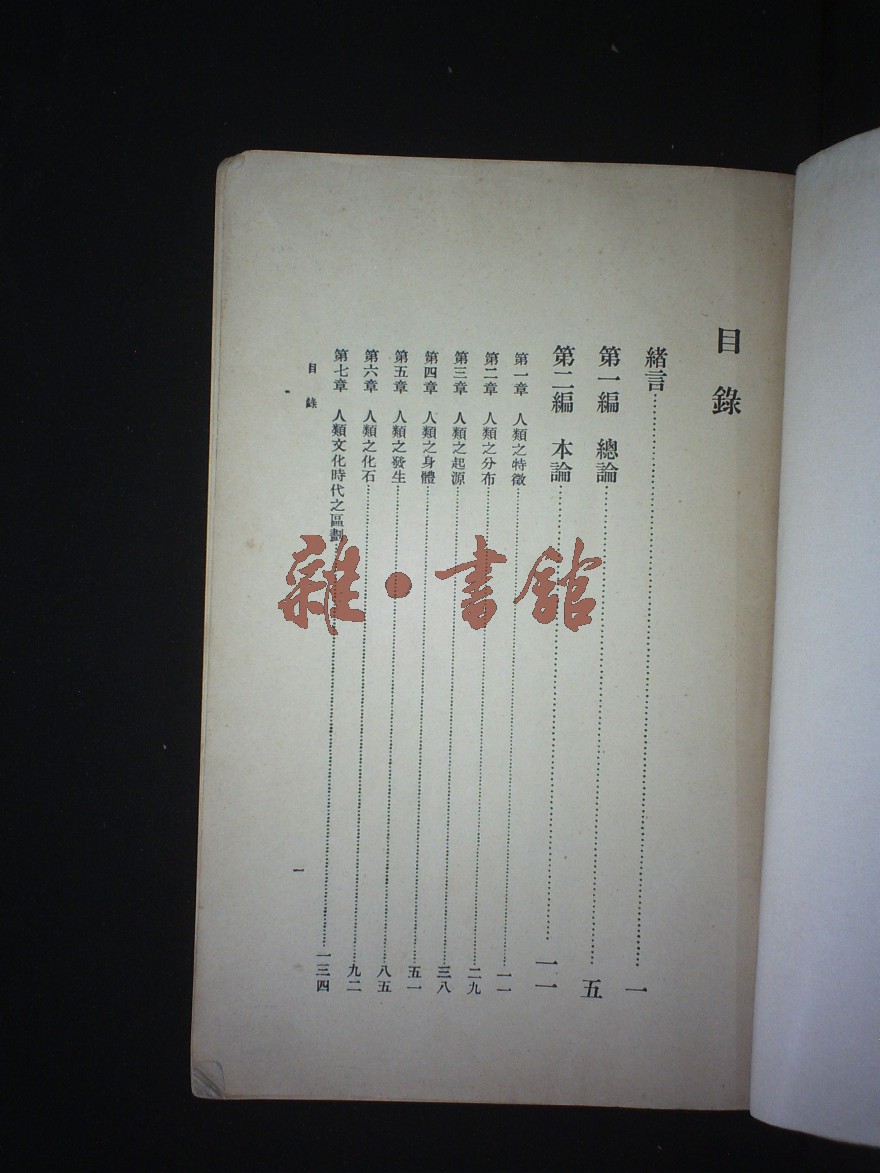 目錄
緒言……一
第一編　總論……五
第二編　本論……一一
第一章　人類之特徵……一一
第二章　人類之分布……二九
第三章　人類之起源……三八
第四章　人類之身體……五一
第五章　人類之發生……八五
第六章　人類之化石……九二
第七章　人類文化時代之區劃……一三四
目錄
一
雜·書館